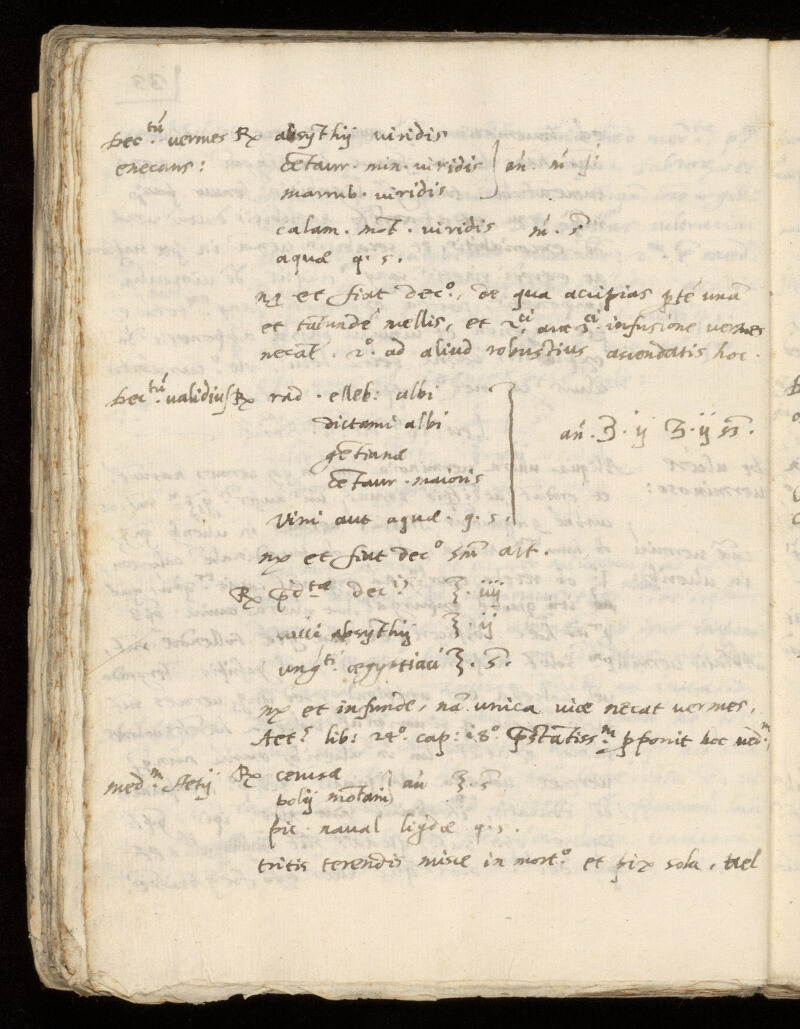 Dectũ vermes ℞ absythij viridis
enecans: cẽtaur. min. viridis } añ. m̃. j
marrub. viridis
calam. mõt. viridis m̃. s̃
aquæ q. s.
et fiat decº., de qua accipias ptẽ unã
et tãtundẽ mellis, et 2ᶜⁱ, aut 3ᶜⁱ. infusione vermes
necat. 2º. ad aliud robustius ascendatis hoc.
Dectũ. validius ℞ rad. elleb: albi
dictami albi
gẽtianæ
cẽtaur. maioris
} añ. ʒ. ij ʒ. ij s̃s̃.
Vini aut aquæ. q. s.
et fiat decº sm̃ art.
℞ p̃dᵗᵃᵉ decⁱˢ ℥. iiij
succi absythij ℥. ij
ungᵗⁱ. ægyptiaci ℥. s̃.
et infunde, nã. unica vice necat vermes.
Aetˢ lib: 14º. cap: 18º. p̃stãtissᵐ. p̃ponit hoc medᵐ.
medᵐ. Aetij ℞ cerusæ
polij mõtani } añ ℥. s̃
pic. naval liqdæ q. s.
tritis terendis misce in mortº. et pix sola, vel